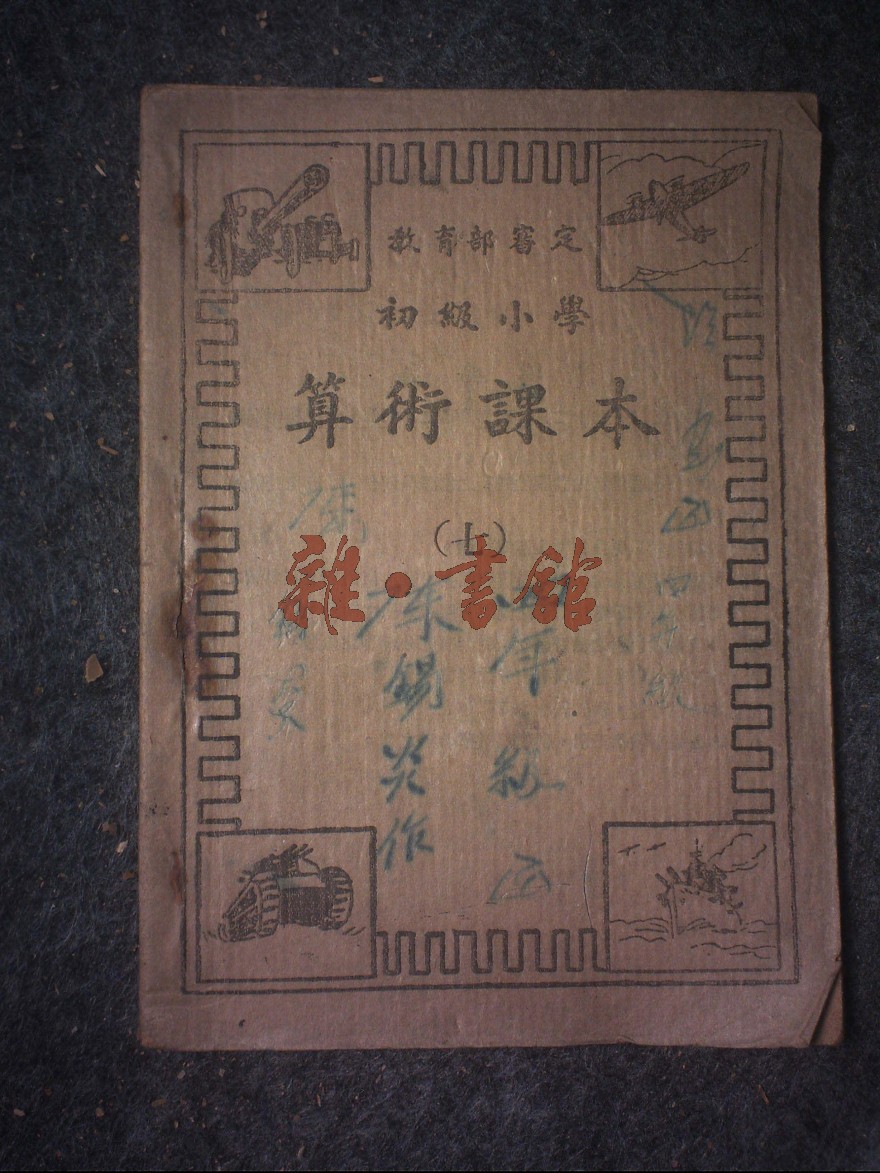 教育部審定
初級小學
算術課本
(七)
雜·書館
四年級
陳錫炎作
四年級